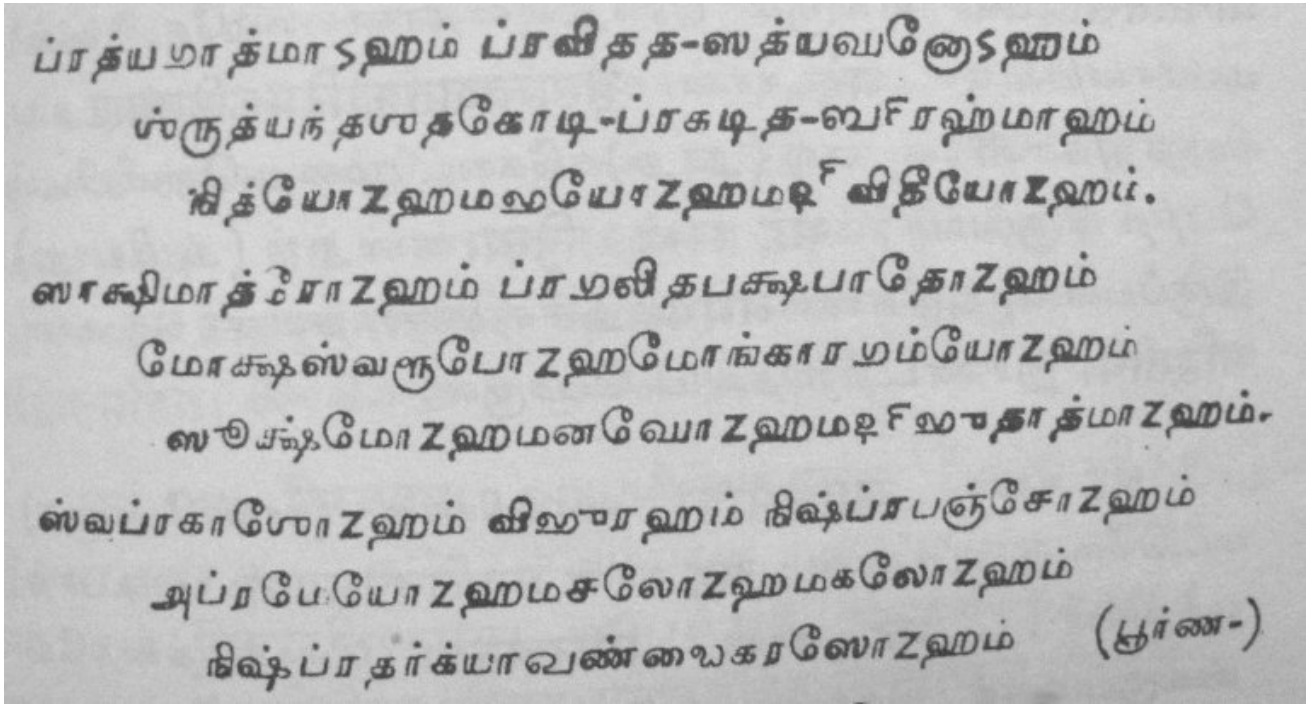 ப்ரத்ய𑌗ாத்மாSஹம் ப்ரவிதத-ஸத்ய𑌘னோSஹம்
ஶ்ருத்யந்தஶதகோடி-ப்ரகடித-𑌬்ரஹ்மாஹம்
நித்யோZஹம𑌭யோZஹம𑌦்விதீயோZஹம்.
ஸாக்ஷிமாத்ரோZஹம் ப்ர𑌗லிதபக்ஷபாதோZஹம்
மோக்ஷஸ்வரூபோZஹமோங்கார𑌗ம்யோZஹம்
ஸூக்ஷ்மோZஹமன𑌘ோZஹம𑌦்𑌭ுதாத்மாZஹம்.
ஸ்வப்ரகாஶோZஹம் வி𑌭ுரஹம் நிஷ்ப்ரபஞ்சோZஹம்
அப்ரமேயோZஹமசலோZஹமகலோZஹம்
நிஷ்ப்ரதர்க்யா𑌖ண்𑌡ைகரஸோZஹம் (பூர்ண-)